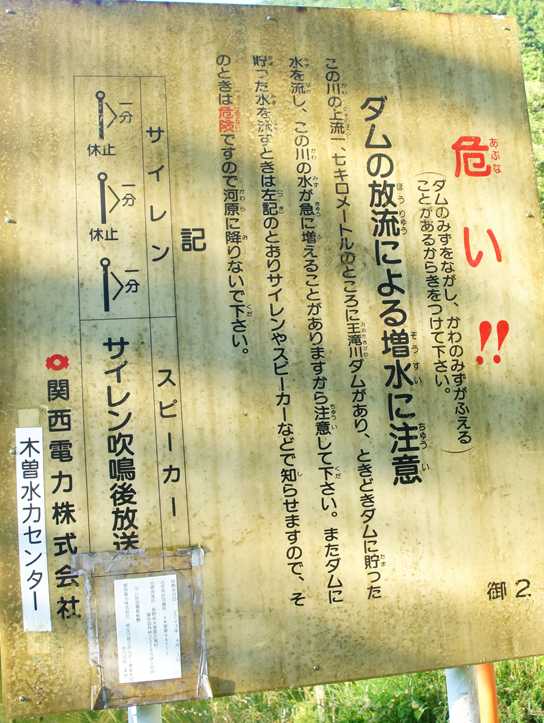 危い!!
(ダムのみずをながし、かわのみずがふえる
ことがあるからきをつけて下さい。)
ダムの放流による増水に注意
この川の上流一、七キロメートルのところに王滝川ダムがあり、ときどきダムに貯った
水を流し、この川の水が急に増えることがありますから注意して下さい。またダムに
貯った水を流すときは左記のとおりサイレンやスピーカーなどで知らせますので、そ
のときは危険ですので河原に降りないで下さい。
記
サイレン
スピーカー
一分
休止
一分
休止
一分
サイレン吹鳴後放送
関西電力株式会社
木曽水力センター
御2